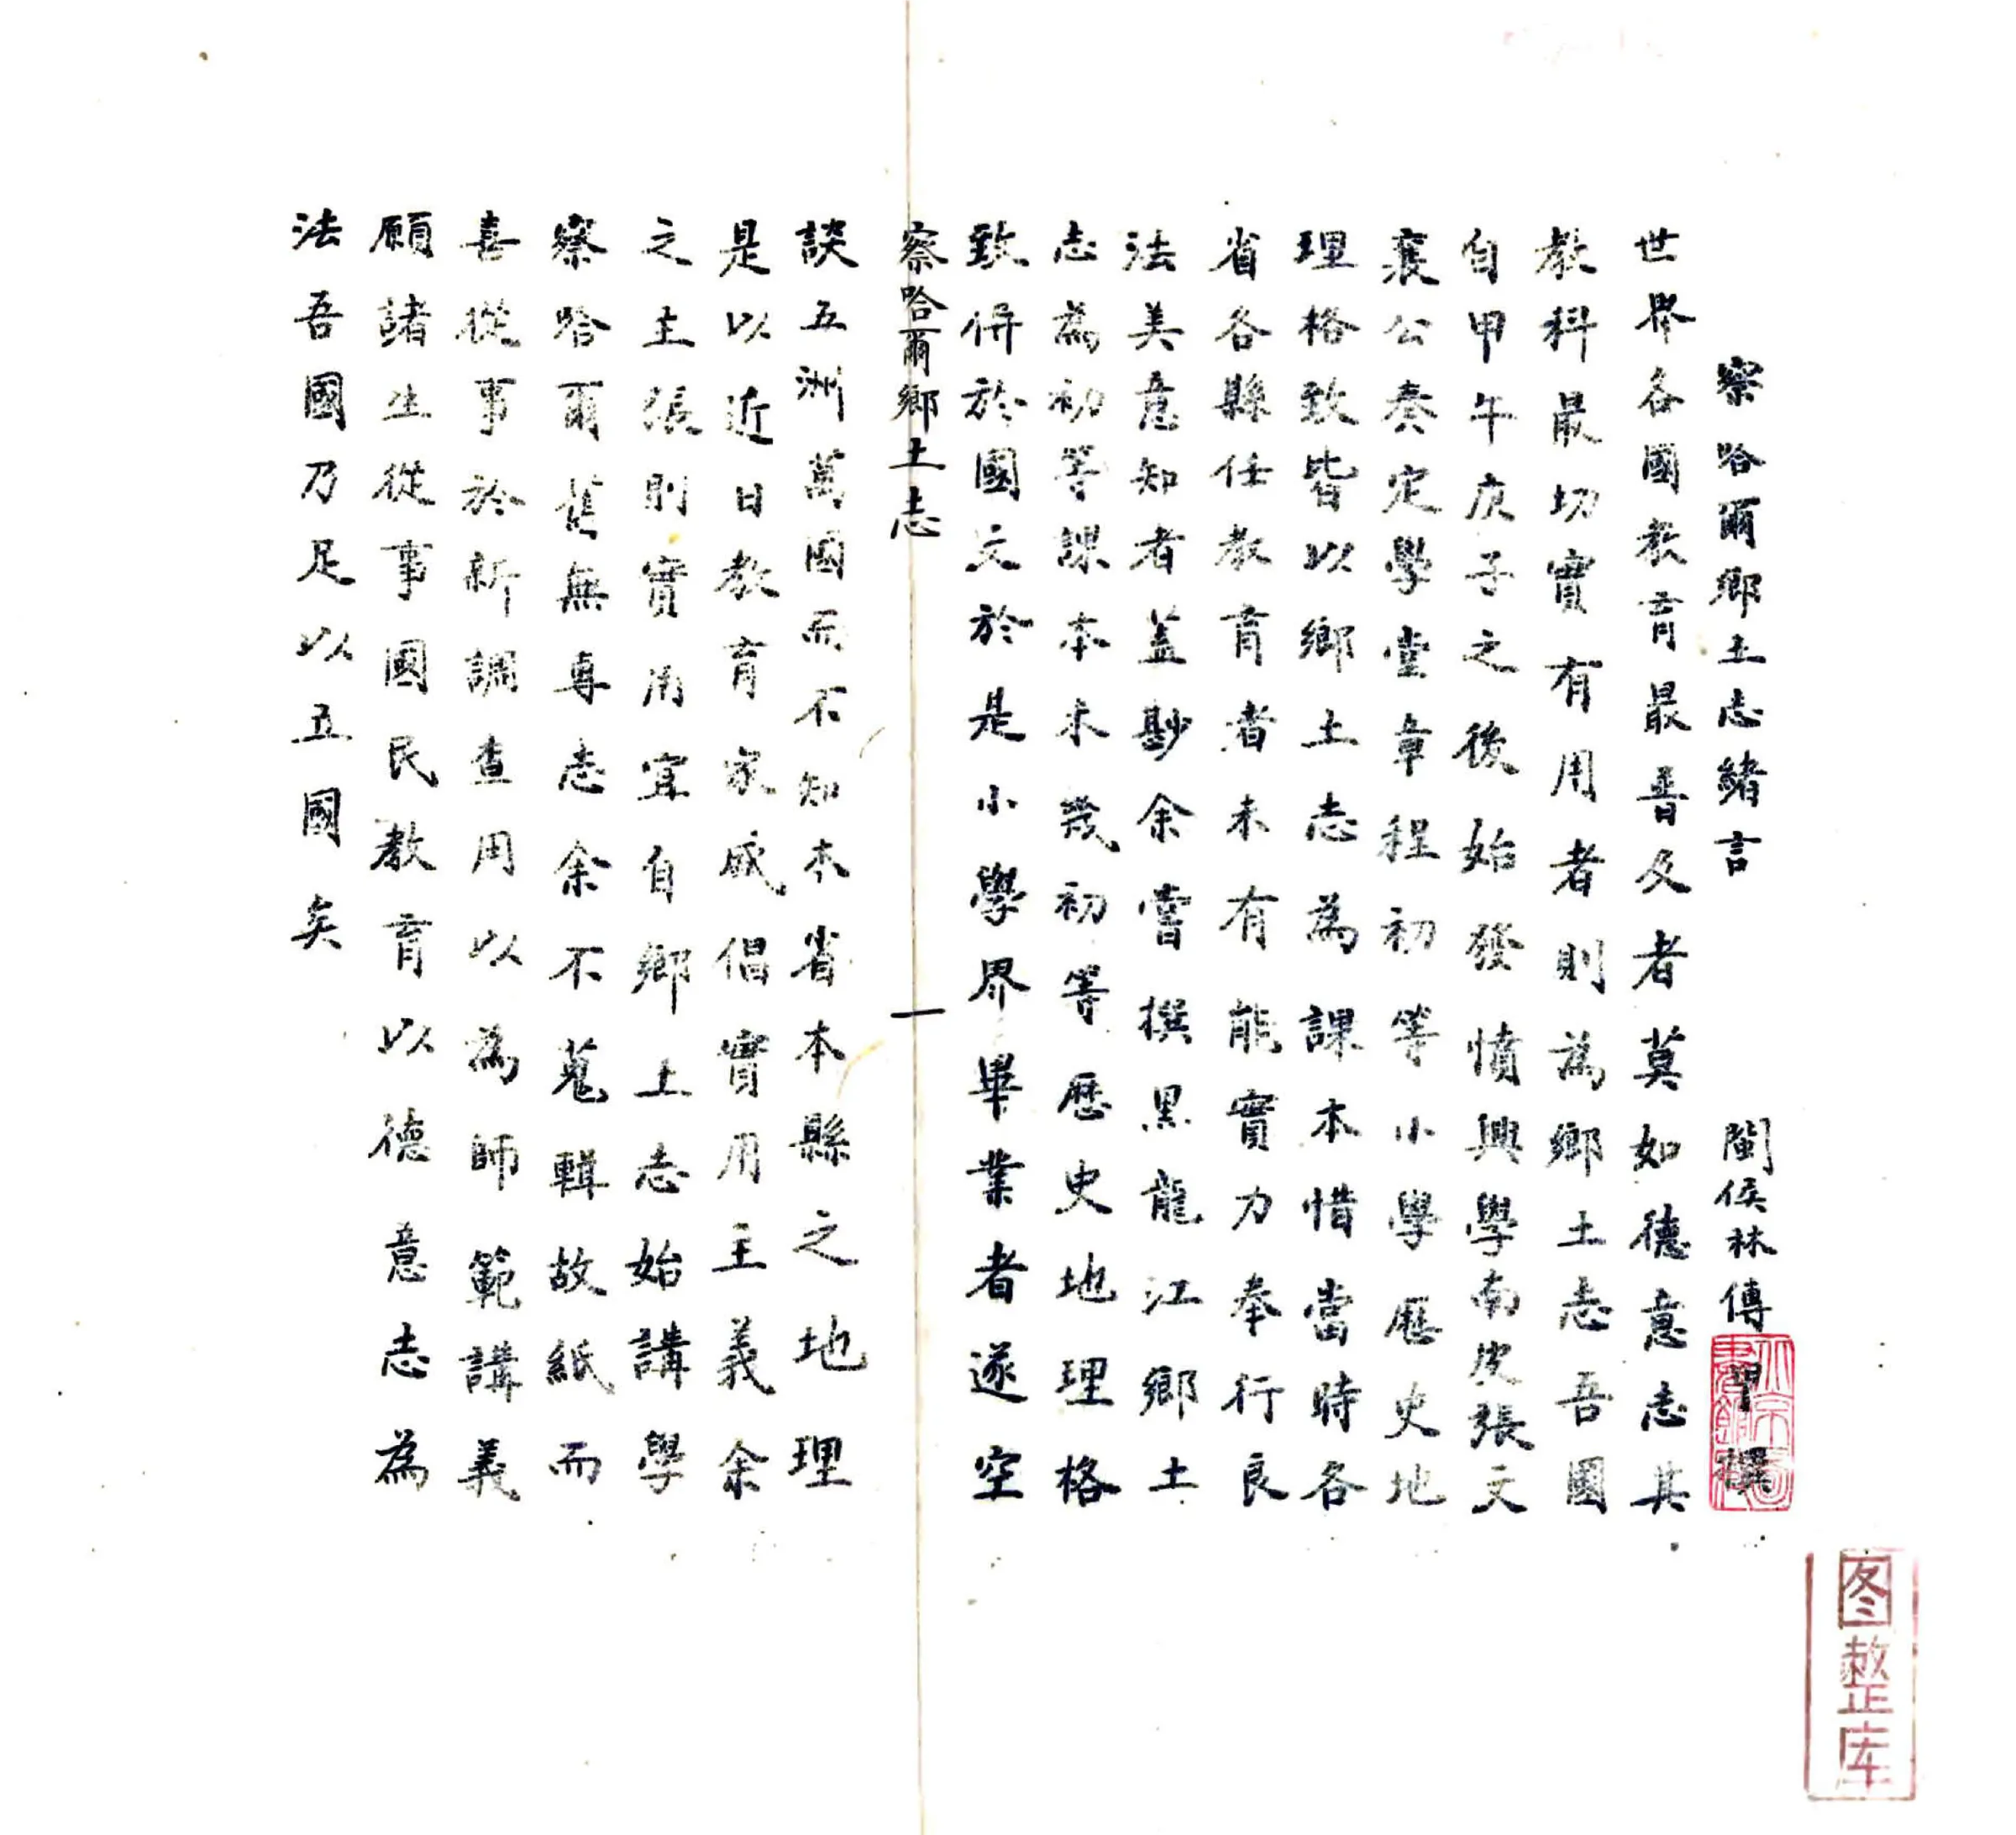 察哈爾鄉土志緒言　閩侯林傳甲撰
世界各國教育最普及者莫如德意志其
教科最切實有用者則為鄉土志吾國
自甲午庚子之後始發憤興學南皮張文
襄公奏定學堂章程初等小學歷史地
理格致皆以鄉土志為課本惜當時各
省各縣任教育者未有能實力奉行良
法美意知者蓋尠余嘗撰黑龍江鄉土
志為初等課本未幾初等歷史地理格
致併於國文於是小學界畢業者遂空
察哈爾鄉土志　一
談五洲萬國而不知本省本縣之地理
是以近日教育家咸倡實用主義余
之主張則實用宜自鄉土志始講學
察哈爾舊無專志余不蒐輯故紙而
喜從事於新調查用以為師範講義
願諸生從事國民教育以德意志為
法吾國乃足以五國矣
图整库